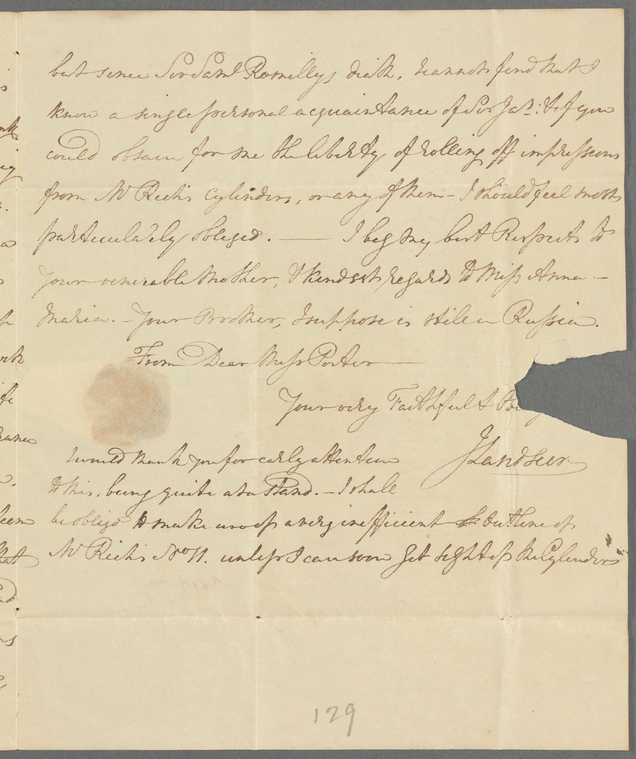 but since Sir Saml Romillys death, I cannot find that I
know a single personal acquaintance of Sir Jas: & if you
could obtain for me the liberty of rolling off impressions
from Mr Rich's cylinders, or any of them – I should feel most
particularly obliged. — I beg my best Respects to
your venerable Mother, & kindest regards to Miss Anna –
Maria. – Your Brother, I suppose is still in Russia.
From Dear Miss Porter
Your very Faithful &
JLandseer
I would thank you for early attention
to this, being quite at a stand. – I shall
be obligd to make use of a very inefficient outline of
Mr Rich's No 11. unless I can soon get sight of the Cylinders
129